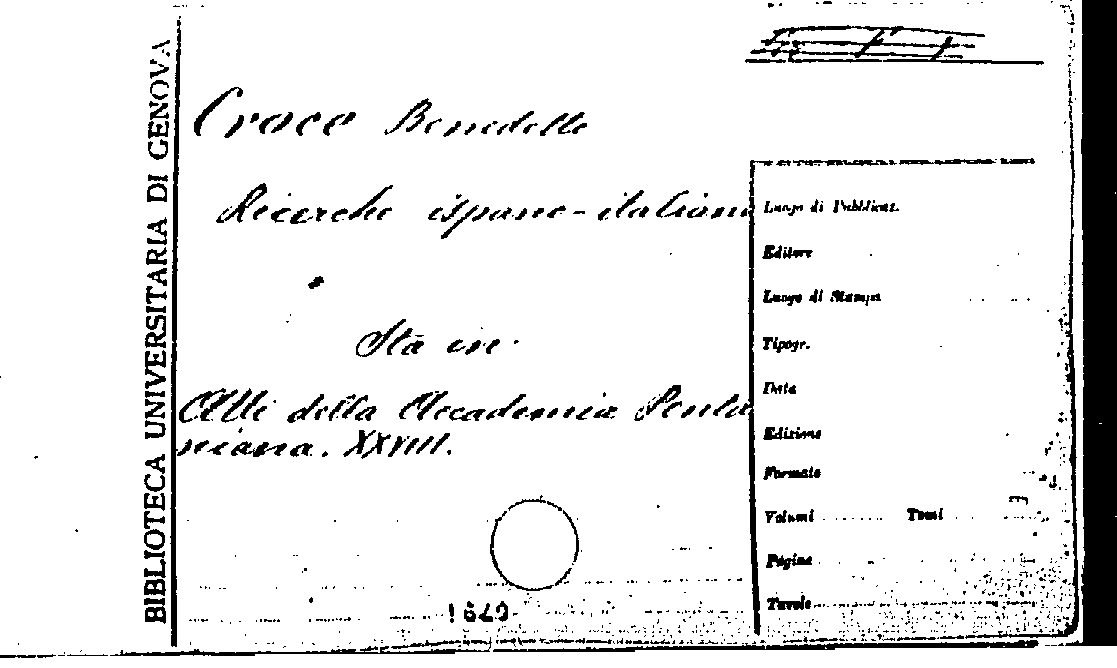 BIBLIOTECA UNIVERSITARIA DI GENOVA
Croce Benedetto
Ricerche ispano-italiane
Sta in
Atti della Accademia Ponta
niana. XXVIII.
Luogo di Pubblicaz.
Editore
Luogo di Stampa
Tipogr.
Data
Edizione
Formato
Volumi Tomi
Pagine
Tavole
1649